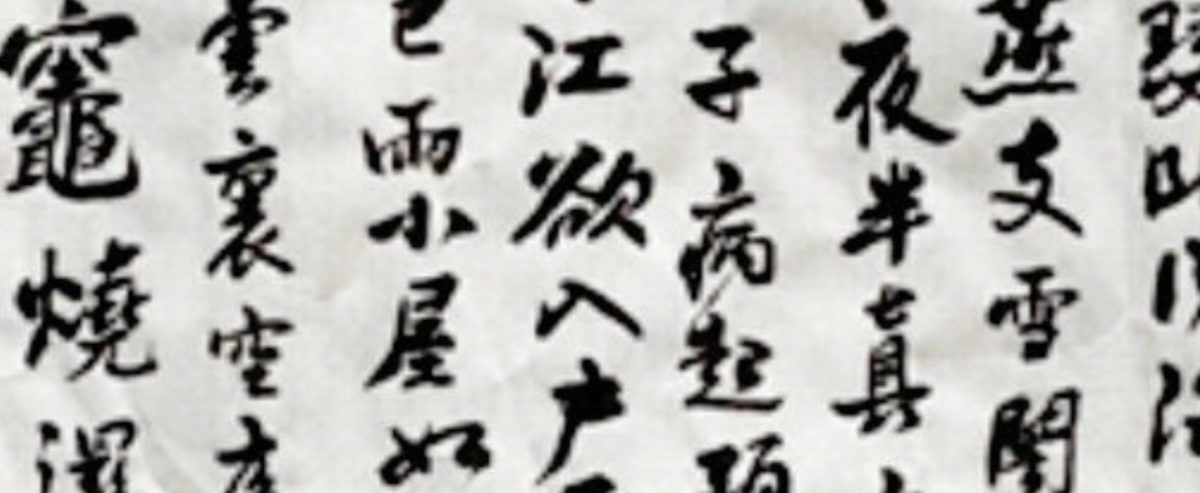 燕支雪闇
夜半真
子病起頭
江欲入戶
已雨小屋如
雲裏空庖
竈燒濕